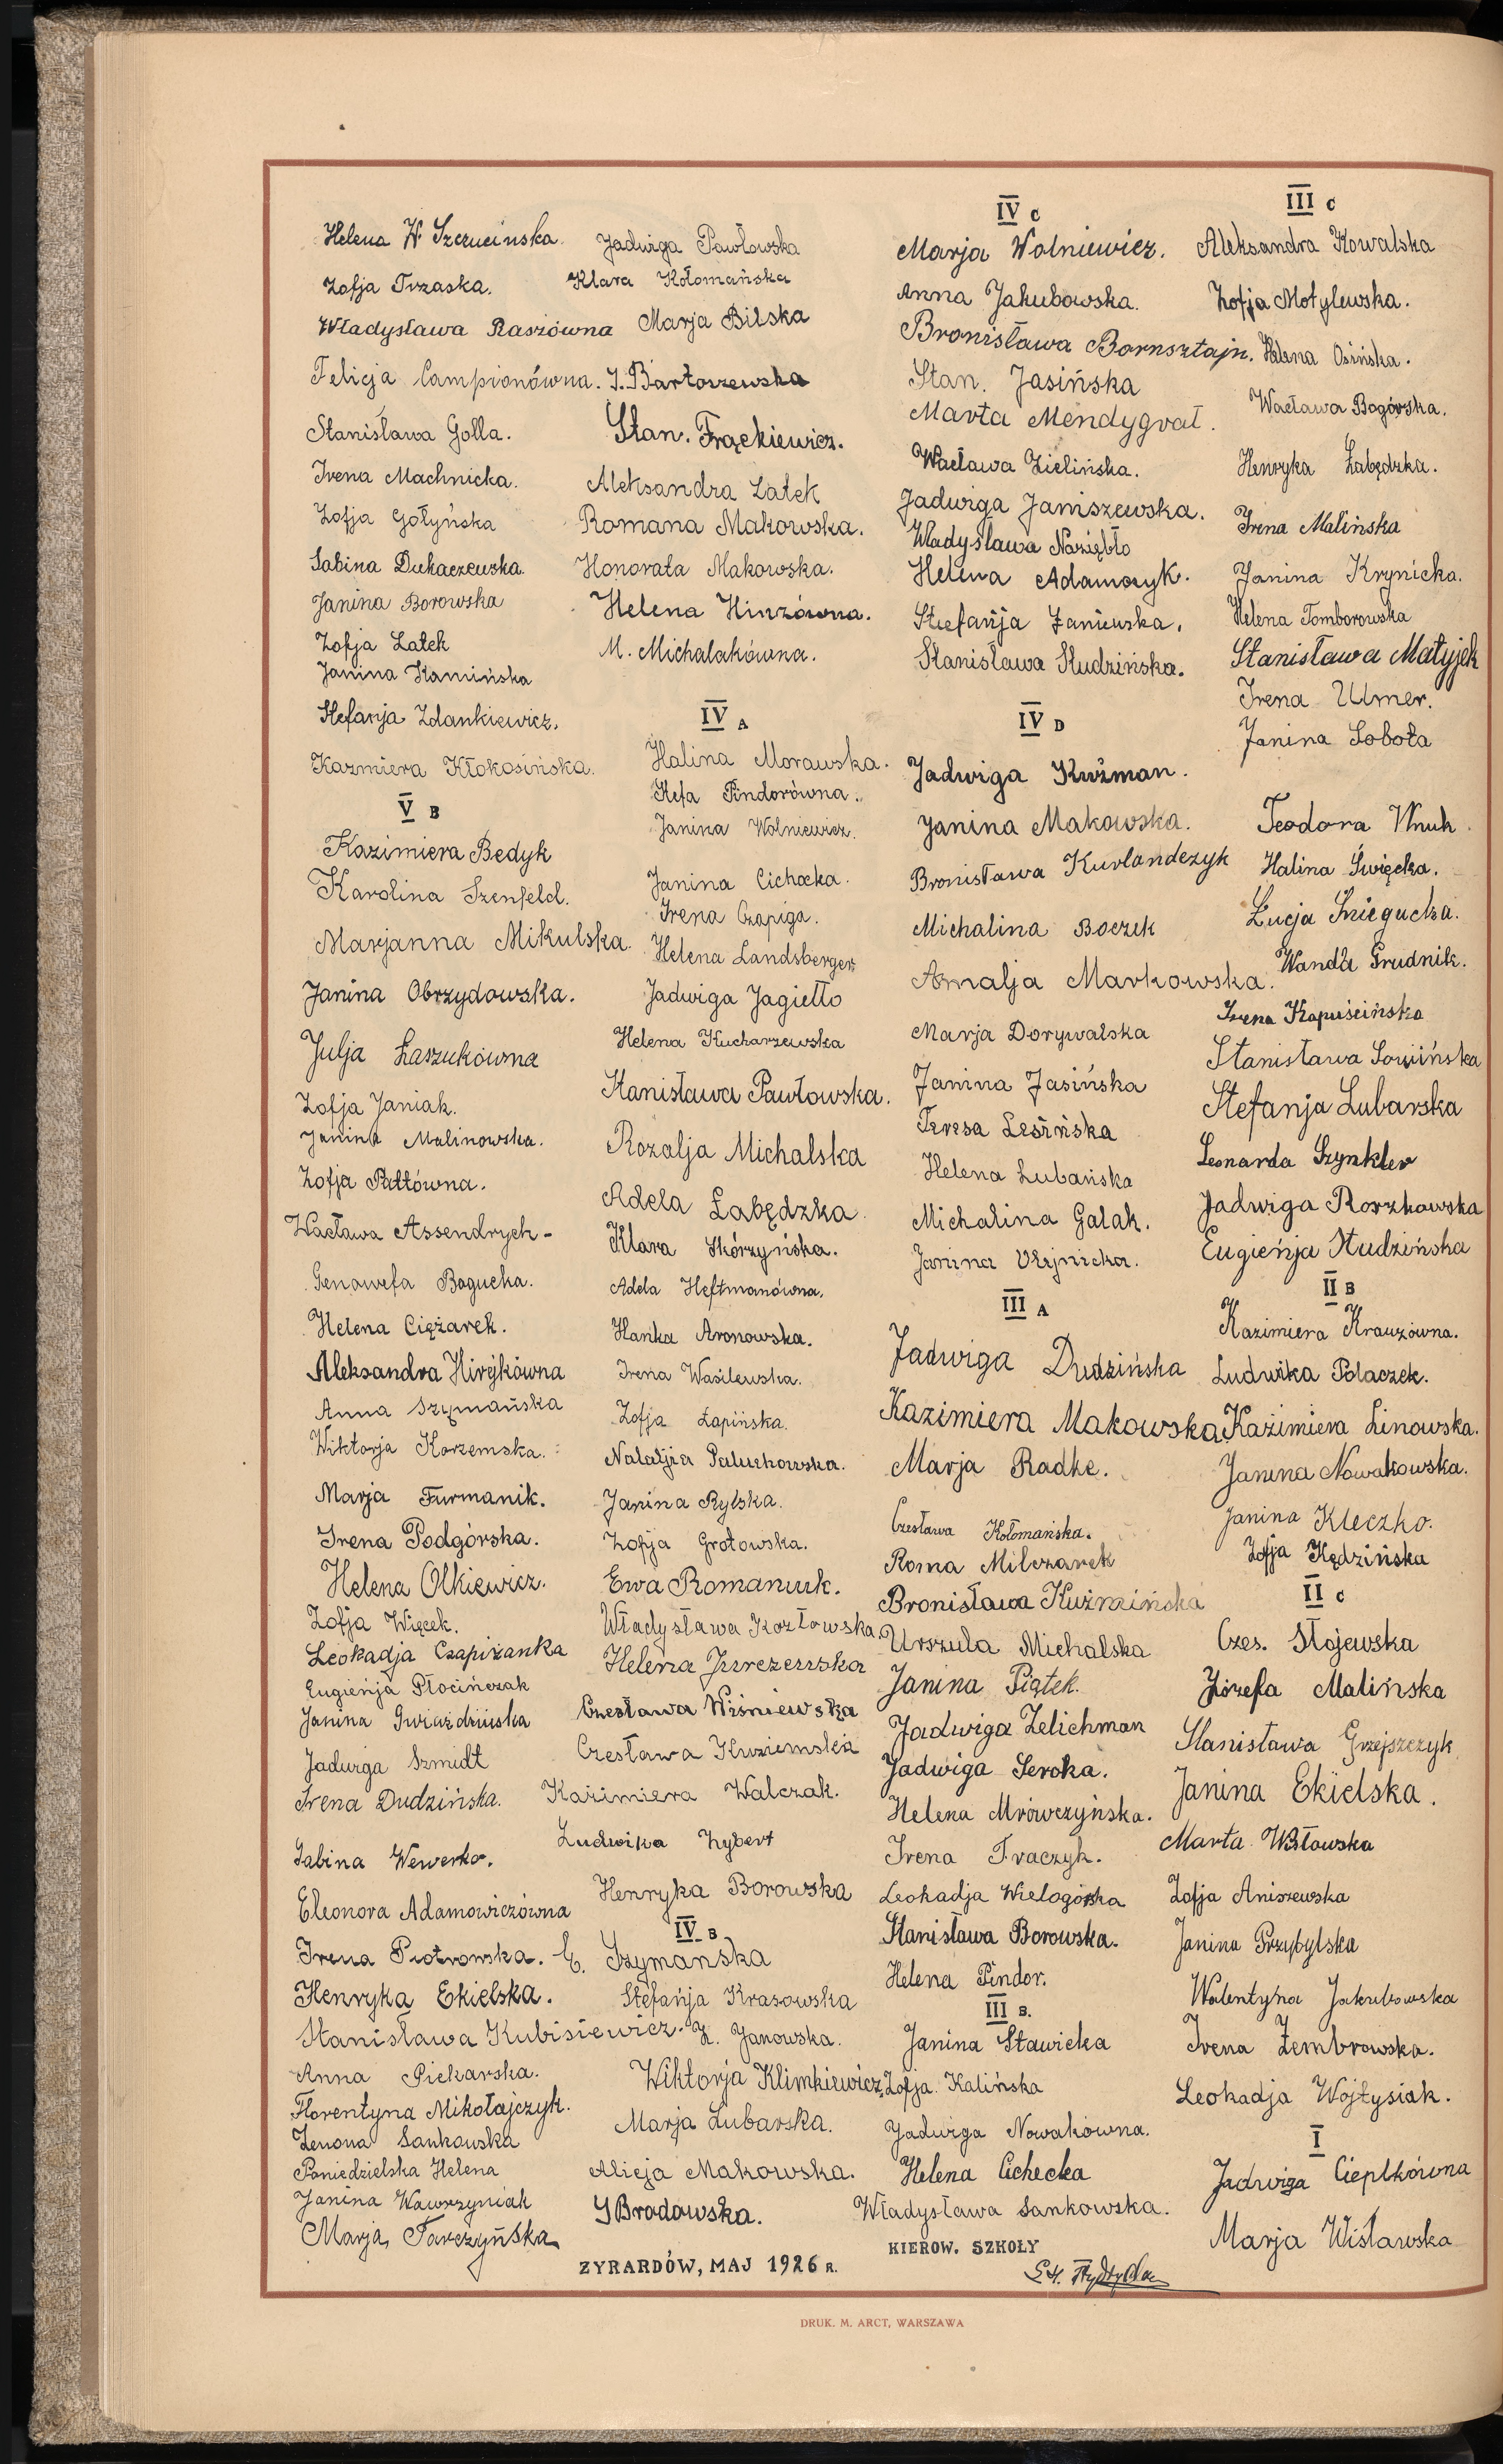 Helena W. Szerucińska.
Zofja Trzaska.
Władysława Raszówna
Felicja Campionówna.
Stanisława Golla.
Irena Machnicka.
Zofja Gołyńska
Sabina Dukaczewska.
Janina Borowska
Zofja Latek
Janina Kamińska
Stefanja Zdankiewicz.
Kazmiera Kłokosińska.
V B
Kazimiera Bedyk
Karolina Szenfeld.
Marjanna Mikulska.
Janina Obrzydowska.
Julja Łaszukówna
Zofja Janiak.
Janina Malinowska.
Zofja Pattówna.
Wacława Assendrych-
Genowefa Bogucka.
Helena Ciężarek.
Aleksandra Hirýkówna
Anna Szymańska
Wiktorja Korzemska.
Marja Furmanik.
Irena Podgórska.
Helena Olkiewicz.
Zofja Więcek.
Leokadja Czapiżanka
Eugienja Płocińczak
Janina Gwiaździńska
Jadwiga Szmidt
Irena Dudzińska.
Sabina Wewerko.
Eleonora Adamowiczówna
Irena Piotrowska.
Henryka Ekielska.
Stanisława Kubisiewicz.
Anna Piekarska.
Florentyna Mikołajczyk.
Zenona Sankowska
Poniedzielska Helena
Janina Wawrzyniak
Marja Tarczyńska
Jadwiga Pawłowska
Klara Kołomańska
Marja Bilska
J. Bartoszewska
Stan. Frąckiewicz.
Aleksandra Latek
Romana Makowska.
Honorata Makowska.
Helena Hinzówna.
M. Michalakówna.
IV A
Halina Morawska.
Stefa Pindorówna.
Janina Wolniewicz.
Janina Cichocka.
Irena Czapiga.
Helena Landsberger.
Jadwiga Jagiełło
Helena Kucharzewska
Stanisława Pawłowska.
Rozalja Michalska
Adela Łabędzka
Klara Skórzyńska.
Adela Heftmanówna.
Hanka Aronowska.
Irena Wasilewska.
Zofja Łapińska.
Natalja Paluchowska.
Janina Rylska.
Zofja Grotowska.
Ewa Romaniuk.
Władysława Kozłowska.
Helena Jurczewska
Czesława Wiśniewska
Czesława Kuziemska
Kazimiera Walczak.
Ludwika Zybert
Henryka Borowska
IV B
E. Szymanska
Stefańja Krasowska
Z. Janowska.
Wiktorja Klimkiewicz.
Marja Lubarska.
Alicja Makowska.
J Brodowska.
ZYRARDÓW, MAJ 1926 R.
IV C
Marja Wolniewicz.
Anna Jakubowska.
Bronisława Bornsztajn.
Stan. Jasińska
Marta Mendygrał.
Wacława Zielińska.
Jadwiga Janiszewska.
Władysława Naziębło
Helena Adamczyk.
Stefańja Żaniewska.
Stanisława Studzińska.
IV D
Jadwiga Kuźman.
Janina Makowska.
Bronisława Kurlandczyk
Michalina Boczek
Amalja Markowska.
Marja Dorywalska
Janina Jasińska
Teresa Lesińska
Helena Lubańska
Michalina Galak.
Janina Olejnicka.
III A
Jadwiga Dudzińska
Kazimiera Makowska
Marja Radke.
Czesława Kołomańska.
Roma Milczarek
Bronisława Kuźmińska
Urszula Michalska
Janina Piątek.
Jadwiga Zelichman
Jadwiga Seroka.
Helena Mrówczyńska.
Irena Tkaczyk.
Leokadja Wielogórska
Stanisława Borowska.
Helena Pindor.
III B.
Janina Stawicka
Zofja Kalińska
Jadwiga Nowakówna.
Helena Cichecka
Władysława Sankowska.
KIEROW. SZKOŁY
III C
Aleksandra Kowalska
Zofja Motylewska.
Helena Osińska.
Wacława Bogórska.
Henryka Łabędzka.
Irena Malińska
Janina Krynicka.
Helena Tomborowska
Stanisława Matyjek
Irena Ulmer.
Janina Sobota
Teodora Wnuk.
Halina Święcka.
Łucja Śniegucka.
Wanda Grudnik.
Irena Kapuścińska
Stanisława Sowińska
Stefanja Lubarska
Leonarda Szynkler
Jadwiga Roszkowska
Eugieńja Studzińska
II B
Kazimiera Krauzówna.
Ludwika Polaczek.
Kazimiera Linowska.
Janina Nowakowska.
Janina Kleczko.
Zofja Kędzińska
II C
Czes. Stojewska
Józefa Malińska
Stanisława Grzejszczyk
Janina Ekielska.
Marta Wisłowska
Zofja Aniszewska
Janina Przybylska
Walentyna Jakubowska
Irena Zembrowska.
Leokadja Wojtysiak.
I
Jadwiga Cieplkówna
Marja Wisławska
DRUK. M. ARCT, WARSZAWA